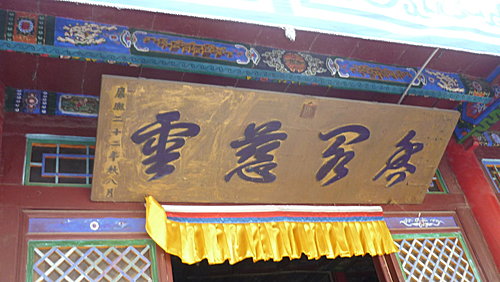 香閣慈雲
康熙二十二年秋八月